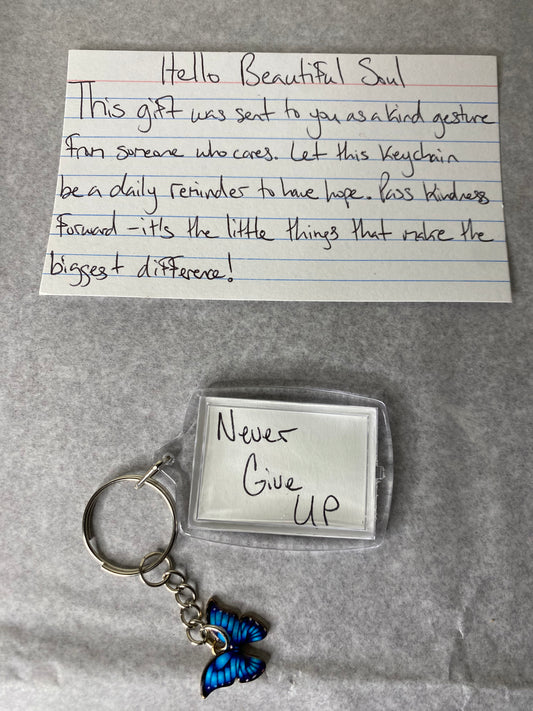 Hello Beautiful Soul
This gift was sent to you as a kind gesture
from someone who cares. Let this keychain
be a daily reminder to have hope. Pass kindness
forward - it's the little things that make the
biggest difference!
Never
Give
UP